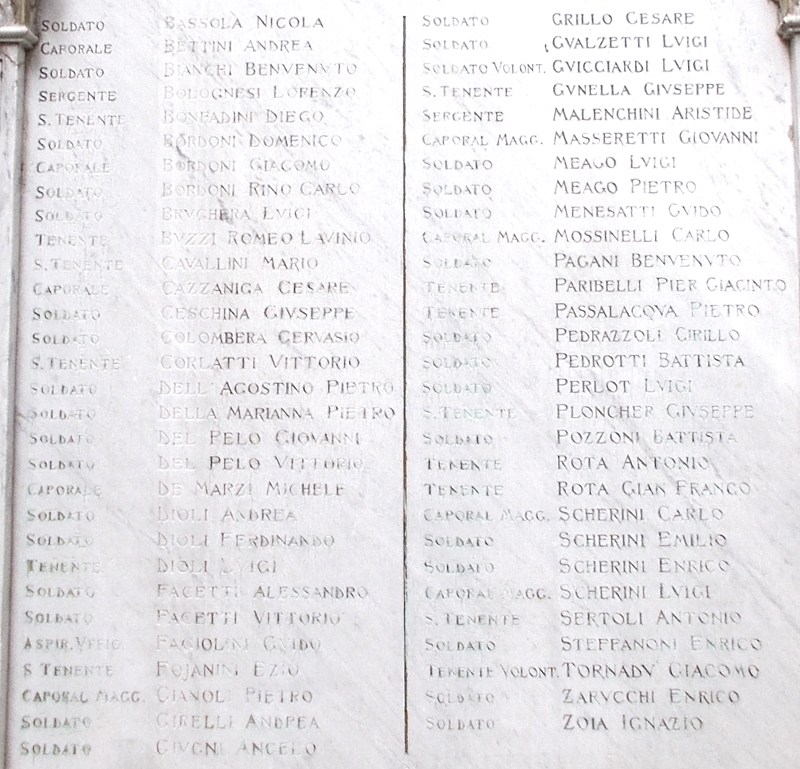 SOLDATO BASSOLA NICOLA
CAPORALE BETTINI ANDREA
SOLDATO BIANCHI BENVENVTO
SERGENTE BOLOGNESI LORENZO
S. TENENTE BONFADINI DIEGO
SOLDATO BORDONI DOMENICO
CAPORALE BORDONI GIACOMO
SOLDATO BORDONI RINO CARLO
SOLDATO BRVGHERA LVIGI
TENENTE BVZZI ROMEO LAVINIO
S. TENENTE CAVALLINI MARIO
CAPORALE CAZZANIGA CESARE
SOLDATO CESCHINA GIVSEPPE
SOLDATO COLOMBERA GERVASIO
S. TENENTE CORLATTI VITTORIO
SOLDATO DELL' AGOSTINO PIETRO
SOLDATO DELLA MARIANNA PIETRO
SOLDATO DEL PELO GIOVANNI
SOLDATO DEL PELO VITTORIO
CAPORALE DE MARZI MICHELE
SOLDATO DIOLI ANDREA
SOLDATO DIOLI FERDINANDO
TENENTE DIOLI LVIGI
SOLDATO FACETTI ALESSANDRO
SOLDATO FACETTI VITTORIO
ASPIR. VFFIC. FAGIOLINI GVIDO
S TENENTE FOJANINI EZIO
CAPORAL MAGG. GIANOLI PIETRO
SOLDATO GIRELLI ANDREA
SOLDATO GIVGNI ANGELO
SOLDATO GRILLO CESARE
SOLDATO GVALZETTI LVIGI
SOLDATO VOLONT. GVICCIARDI LVIGI
S. TENENTE GVNELLA GIVSEPPE
SERGENTE MALENCHINI ARISTIDE
CAPORAL MAGG. MASSERETTI GIOVANNI
SOLDATO MEAGO LVIGI
SOLDATO MEAGO PIETRO
SOLDATO MENESATTI GVIDO
CAPORAL MAGG. MOSSINELLI CARLO
SOLDATO PAGANI BENVENVTO
TENENTE PARIBELLI PIER GIACINTO
TENENTE PASSALACQVA PIETRO
SOLDATO PEDRAZZOLI CIRILLO
SOLDATO PEDROTTI BATTISTA
SOLDATO PERLOT LVIGI
S. TENENTE PLONCHER GIVSEPPE
SOLDATO POZZONI BATTISTA
TENENTE ROTA ANTONIO
TENENTE ROTA GIAN FRANCO
CAPORAL MAGG. SCHERINI CARLO
SOLDATO SCHERINI EMILIO
SOLDATO SCHERINI ENRICO
CAPORAL MAGG. SCHERINI LVIGI
S. TENENTE SERTOLI ANTONIO
SOLDATO STEFFANONI ENRICO
TENENTE VOLONT. TORNADV GIACOMO
SOLDATO ZARVCCHI ENRICO
SOLDATO ZOIA IGNAZIO